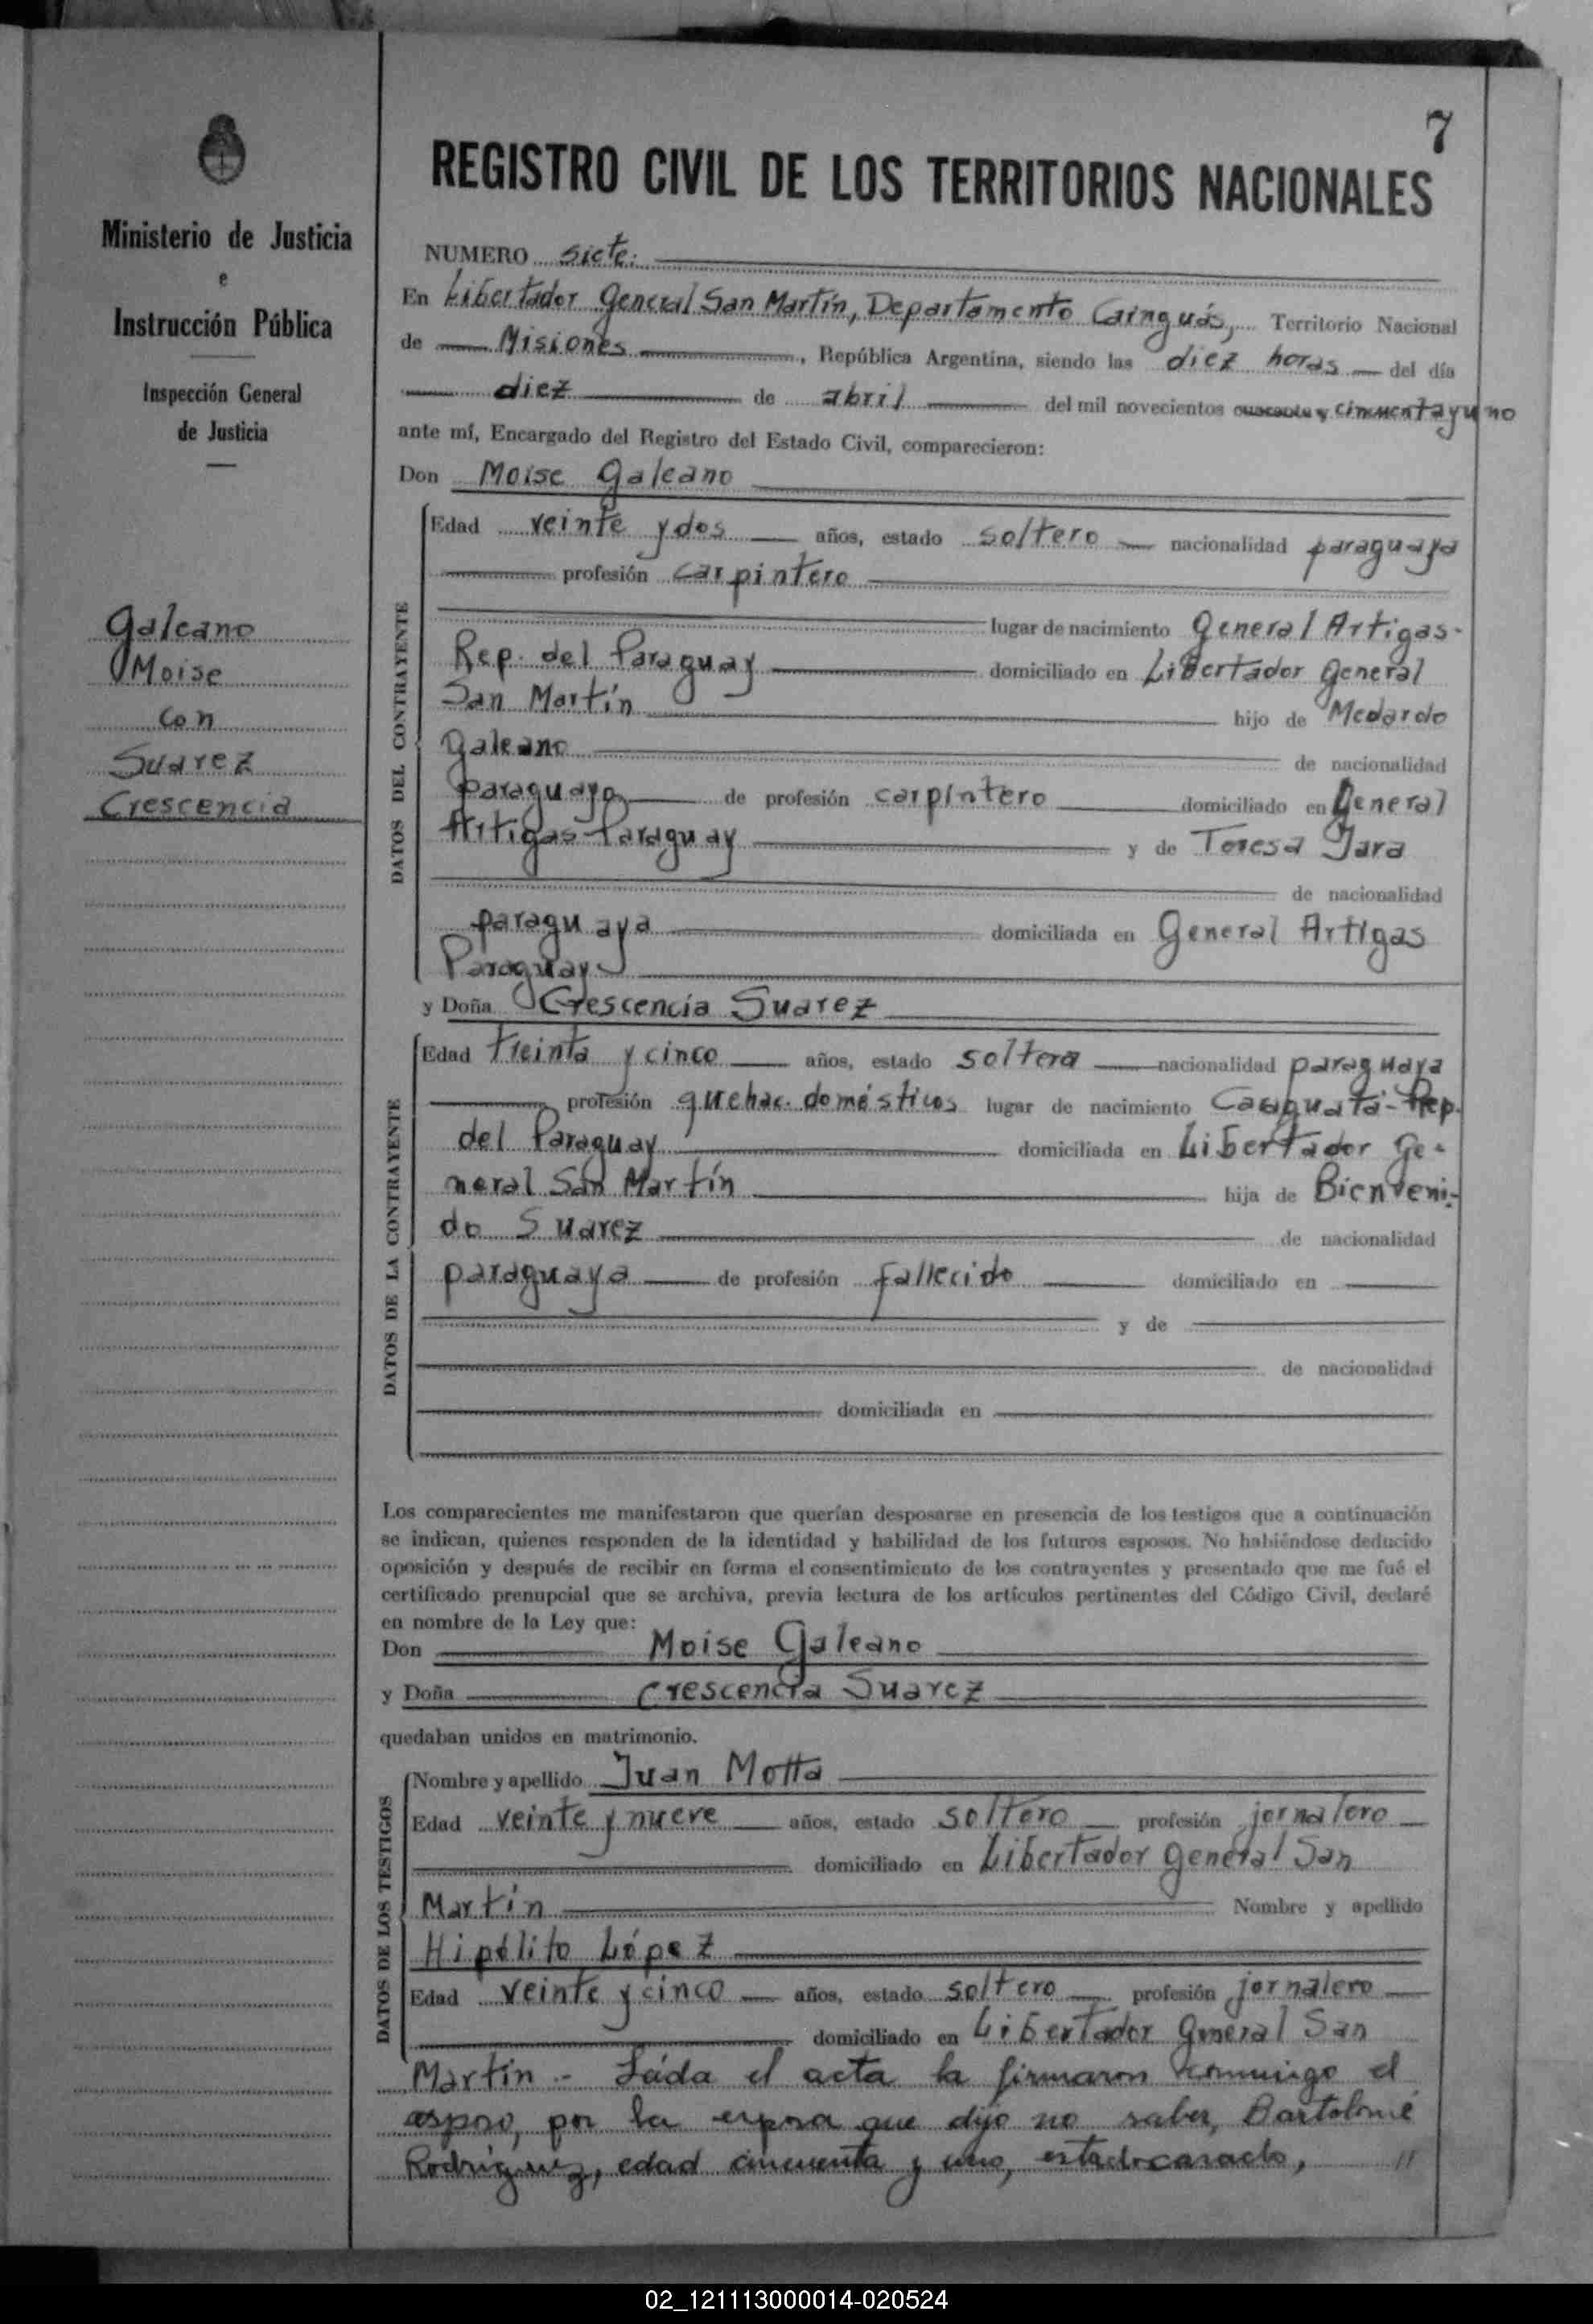 7
REGISTRO CIVIL DE LOS TERRITORIOS NACIONALES
Ministerio de Justicia
e
Instrucción Pública
Inspección General
de Justicia
Galeano
Moise
con
Suarez
Crescencia
NUMERO siete:
En Libertador General San Martín, Departamento Cainguás, Territorio Nacional
de Misiones, República Argentina, siendo las diez horas del día
diez de abril del mil novecientos cuarenta y cincuenta y uno
ante mí, Encargado del Registro del Estado Civil, comparecieron:
Don Moise Galeano
DATOS DEL CONTRAYENTE
Edad veinte y dos años, estado soltero nacionalidad paraguaya
profesión carpintero
lugar de nacimiento General Artigas-
Rep. del Paraguay domiciliado en Libertador General
San Martín hijo de Medardo
Galeano de nacionalidad
paraguayo de profesión carpintero domiciliado en General
Artigas-Paraguay y de Teresa Jara
de nacionalidad
paraguaya domiciliada en General Artigas
Paraguay
y Doña Crescencia Suarez
DATOS DE LA CONTRAYENTE
Edad treinta y cinco años, estado soltera nacionalidad paraguaya
profesión quehac. domésticos lugar de nacimiento Caraguatá-Rep.
del Paraguay domiciliada en Libertador Ge-
neral San Martín hija de Bienveni-
do Suarez de nacionalidad
paraguaya de profesión fallecido domiciliado en
y de
de nacionalidad
domiciliada en
Los comparecientes me manifestaron que querían desposarse en presencia de los testigos que a continuación
se indican, quienes responden de la identidad y habilidad de los futuros esposos. No habiéndose deducido
oposición y después de recibir en forma el consentimiento de los contrayentes y presentado que me fué el
certificado prenupcial que se archiva, previa lectura de los artículos pertinentes del Código Civil, declaré
en nombre de la Ley que:
Don Moise Galeano
y Doña Crescencia Suarez
quedaban unidos en matrimonio.
DATOS DE LOS TESTIGOS
Nombre y apellido Juan Motta
Edad veinte y nueve años, estado soltero profesión jornalero
domiciliado en Libertador General San
Martín Nombre y apellido
Hipólito López
Edad veinte y cinco años, estado soltero profesión jornalero
domiciliado en Libertador General San
Martín.- Leída el acta la firmaron conmigo el
esposo, por la esposa que dijo no saber, Bartolomé
Rodriguez, edad cincuenta y uno, estado casado, //
02_121113000014-020524